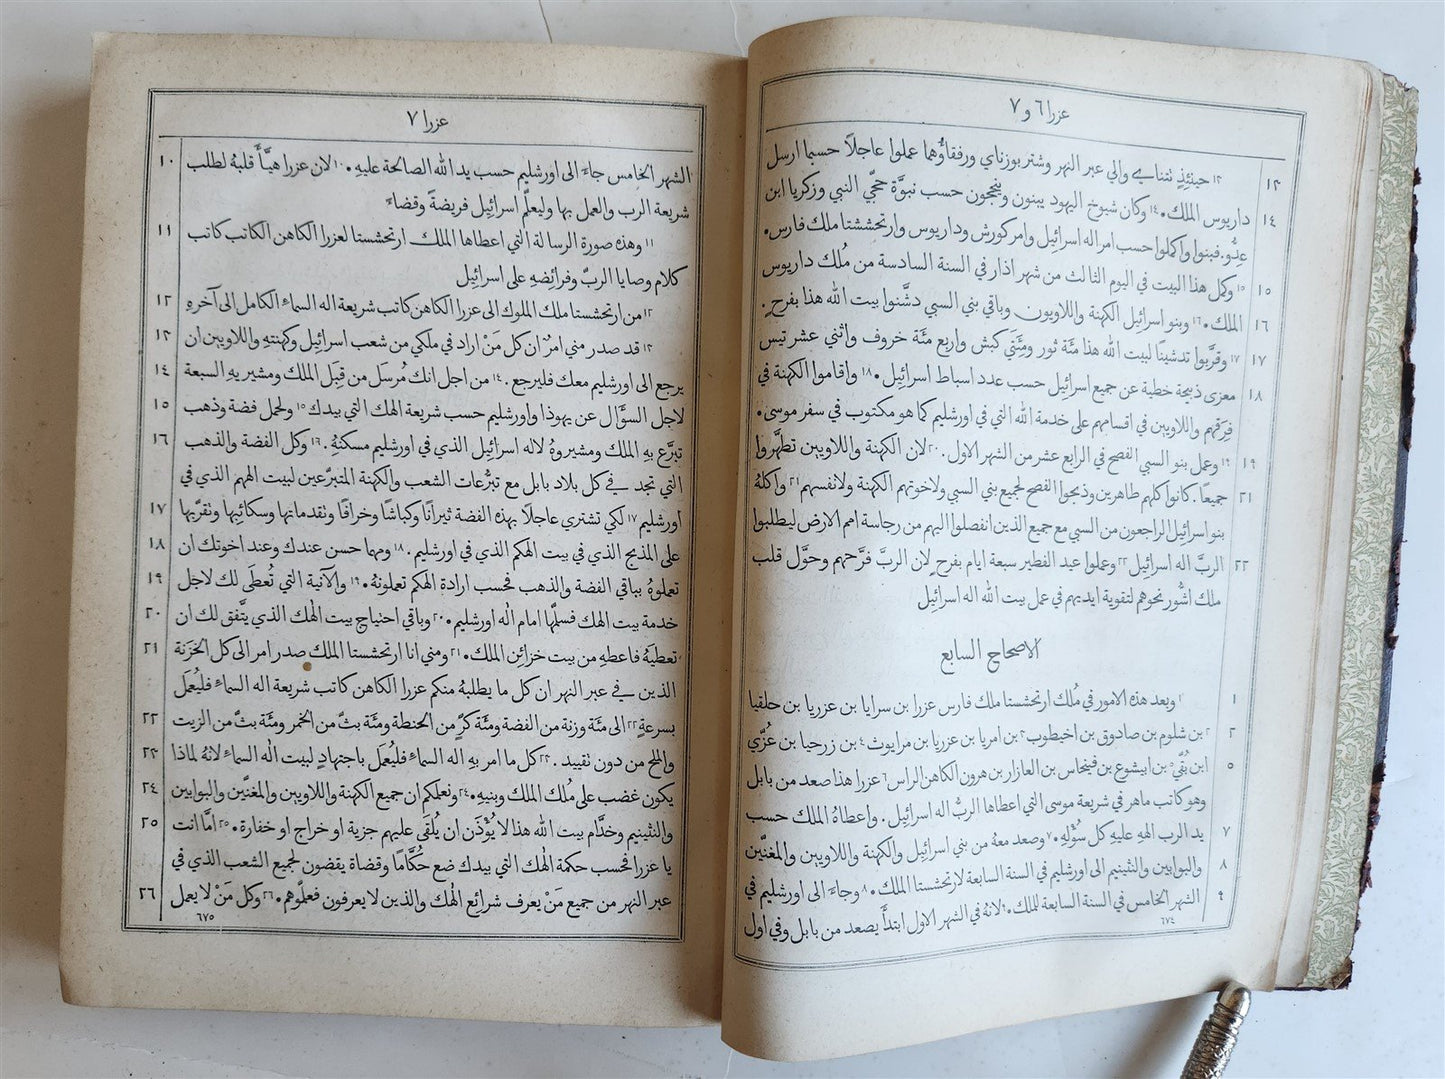 عزرا ٦ و ٧
١٣ حينئذٍ تتناي والي عبر النهر وشتر بوزناي ورفقاؤهما عملوا عاجلاً حسبما ارسل ١٣
داريوس الملك. ١٤ وكان شيوخ اليهود يبنون وينجحون حسب نبوَّة حجّي النبي وزكريا ابن ١٤
عِدُّو. فبنوا واكملوا حسب امر اله اسرائيل وامر كورش وداريوس وارتحشستا ملك فارس.
١٥ وكمل هذا البيت في اليوم الثالث من شهر اذار في السنة السادسة من مُلك داريوس ١٥
الملك. ١٦ وبنو اسرائيل الكهنة واللاويون وباقي بني السبي دشَّنوا بيت الله هذا بفرح. ١٦
١٧ وقرَّبوا تدشينًا لبيت الله هذا مئة ثور ومئتَي كبش واربع مئة خروف واثني عشر تيس ١٧
معزى ذبيحة خطية عن جميع اسرائيل حسب عدد اسباط اسرائيل. ١٨ واقاموا الكهنة في ١٨
فرَقهم واللاويين في اقسامهم على خدمة الله التي في اورشليم كما هو مكتوب في سفر موسى.
١٩ وعمل بنو السبي الفصح في الرابع عشر من الشهر الاول. ٢٠ لان الكهنة واللاويين تطهَّروا ١٩
جميعًا. كانوا كلهم طاهرين وذبحوا الفصح لجميع بني السبي ولاخوتهم الكهنة ولانفسهم ٢١ واكلهُ ٢١
بنو اسرائيل الراجعون من السبي مع جميع الذين انفصلوا اليهم من رجاسة امم الارض ليطلبوا
الربَّ اله اسرائيل ٢٢ وعملوا عيد الفطير سبعة ايام بفرحٍ لان الربَّ فرَّحهم وحوَّل قلب ٢٢
ملك اشُّور نحوهم لتقوية ايديهم في عمل بيت الله اله اسرائيل
الاصحاح السابع
١ وبعد هذه الامور في مُلك ارتحشستا ملك فارس عزرا بن سرايا بن عزريا بن حلقيا ١
٢ بن شلوم بن صادوق بن اخيطوب ٣ بن امريا بن عزريا بن مرايوث ٤ بن زرحيا بن عُزّي ٢
ابن بُقِّي ٥ بن ابيشوع بن فينحاس بن العازار بن هرون الكاهن الراس ٦ عزرا هذا صعد من بابل ٥
وهو كاتب ماهر في شريعة موسى التي اعطاها الربُّ اله اسرائيل. واعطاهُ الملك حسب
يد الرب الههِ عليهِ كل سُؤْلهِ. ٧ وصعد معهُ من بني اسرائيل والكهنة واللاويين والمغنّين ٧
والبوابين والنثينيم الى اورشليم في السنة السابعة لارتحشستا الملك. ٨ وجاءَ الى اورشليم في ٨
الشهر الخامس في السنة السابعة للملك. ٩ لانهُ في الشهر الاول ابتدأَ يصعد من بابل وفي اول ٩
٦٧٤
عزرا ٧
الشهر الخامس جاءَ الى اورشليم حسب يد الله الصالحة عليهِ. ١٠ لان عزرا هيَّأَ قلبهُ لطلب ١٠
شريعة الرب والعمل بها وليعلّم اسرائيل فريضةً وقضاءً
١١ وهذه صورة الرسالة التي اعطاها الملك ارتحشستا لعزرا الكاهن الكاتب كاتب ١١
كلام وصايا الربّ وفرائضهِ على اسرائيل
١٢ من ارتحشستا ملك الملوك الى عزرا الكاهن كاتب شريعة اله السماء الكامل الى آخرهِ ١٢
١٣ قد صدر مني امرٌ ان كل مَنْ اراد في ملكي من شعب اسرائيل وكهنتهِ واللاويين ان ١٣
يرجع الى اورشليم معك فليرجع. ١٤ من اجل انك مُرسَل من قِبَل الملك ومشيريهِ السبعة ١٤
لاجل السؤَال عن يهوذا واورشليم حسب شريعة الهك التي بيدك ١٥ ولحمل فضة وذهب ١٥
تبرَّع بهِ الملك ومشيروهُ لاله اسرائيل الذي في اورشليم مسكنهُ. ١٦ وكل الفضة والذهب ١٦
التي تجد في كل بلاد بابل مع تبرُّعات الشعب والكهنة المتبرّعين لبيت الههم الذي في
اورشليم ١٧ لكي تشتري عاجلاً بهذه الفضة ثيرانًا وكباشًا وخرافًا وتقدماتها وسكائبها وتقرّبها ١٧
على المذبح الذي في بيت الهكم الذي في اورشليم. ١٨ ومهما حسن عندك وعند اخوتك ان ١٨
تعملوهُ بباقي الفضة والذهب فحسب ارادة الهكم تعملونهُ. ١٩ والآنية التي تُعطَى لك لاجل ١٩
خدمة بيت الهك فسلّمها امام اله اورشليم. ٢٠ وباقي احتياج بيت الهك الذي يتَّفق لك ان ٢٠
تعطيَهُ فاعطهِ من بيت خزائن الملك. ٢١ ومني انا ارتحشستا الملك صدر امر الى كل الخزَنة ٢١
الذين في عبر النهر ان كل ما يطلبهُ منكم عزرا الكاهن كاتب شريعة اله السماء فليُعمَل
بسرعةٍ ٢٢ الى مئة وزنة من الفضة ومئة كرٍّ من الحنطة ومئة بثٍّ من الخمر ومئة بثٍّ من الزيت ٢٢
والملح من دون تقييد. ٢٣ كل ما امر بهِ اله السماء فليُعمَل باجتهادٍ لبيت اله السماء لانهُ لماذا ٢٣
يكون غضب على مُلك الملك وبنيهِ. ٢٤ ونعلمكم ان جميع الكهنة واللاويين والمغنّين والبوابين ٢٤
والنثينيم وخدَّام بيت الله هذا لا يُؤْذَن ان يُلقَى عليهم جزية او خراج او خفارة. ٢٥ امَّا انت ٢٥
يا عزرا فحسب حكمة الهك التي بيدك ضع حُكَّامًا وقضاة يقضون لجميع الشعب الذي في
عبر النهر من جميع مَنْ يعرف شرائع الهك والذين لا يعرفون فعلّموهم. ٢٦ وكل مَنْ لا يعمل ٢٦
٦٧٥